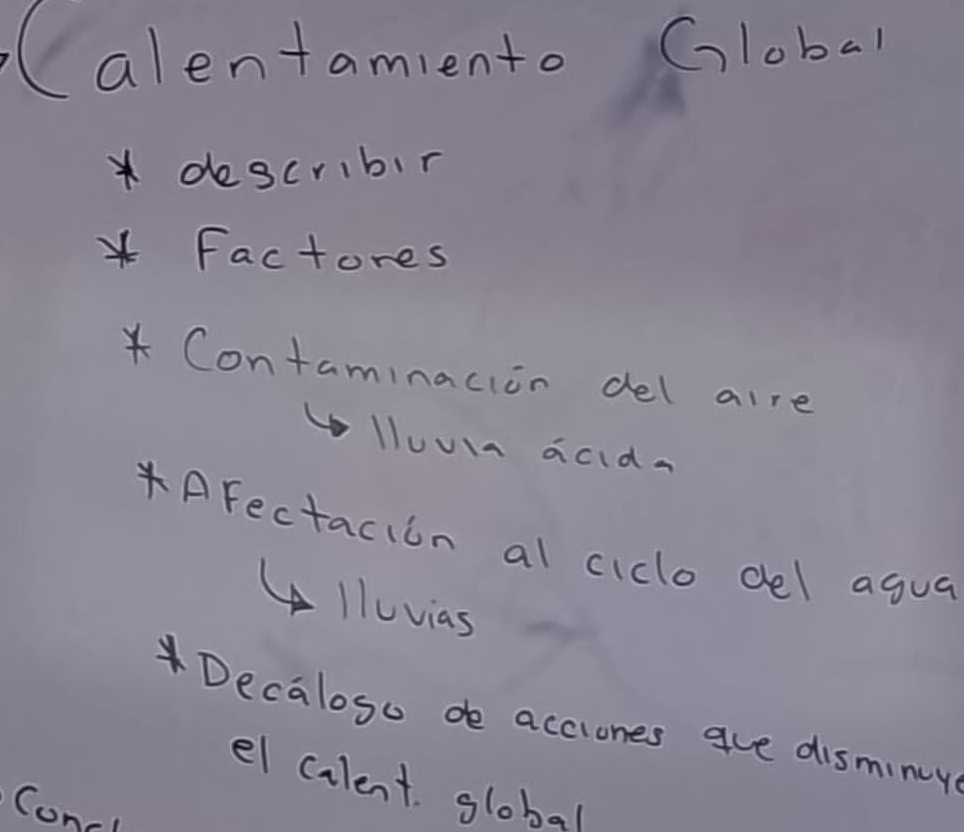 Calentamiento Global
* describir
* Factores
* Contaminación del aire
↳ lluvia ácida
* Afectación al ciclo del agua
↳ lluvias
* Decálogo de acciones que disminuye
el calent. global